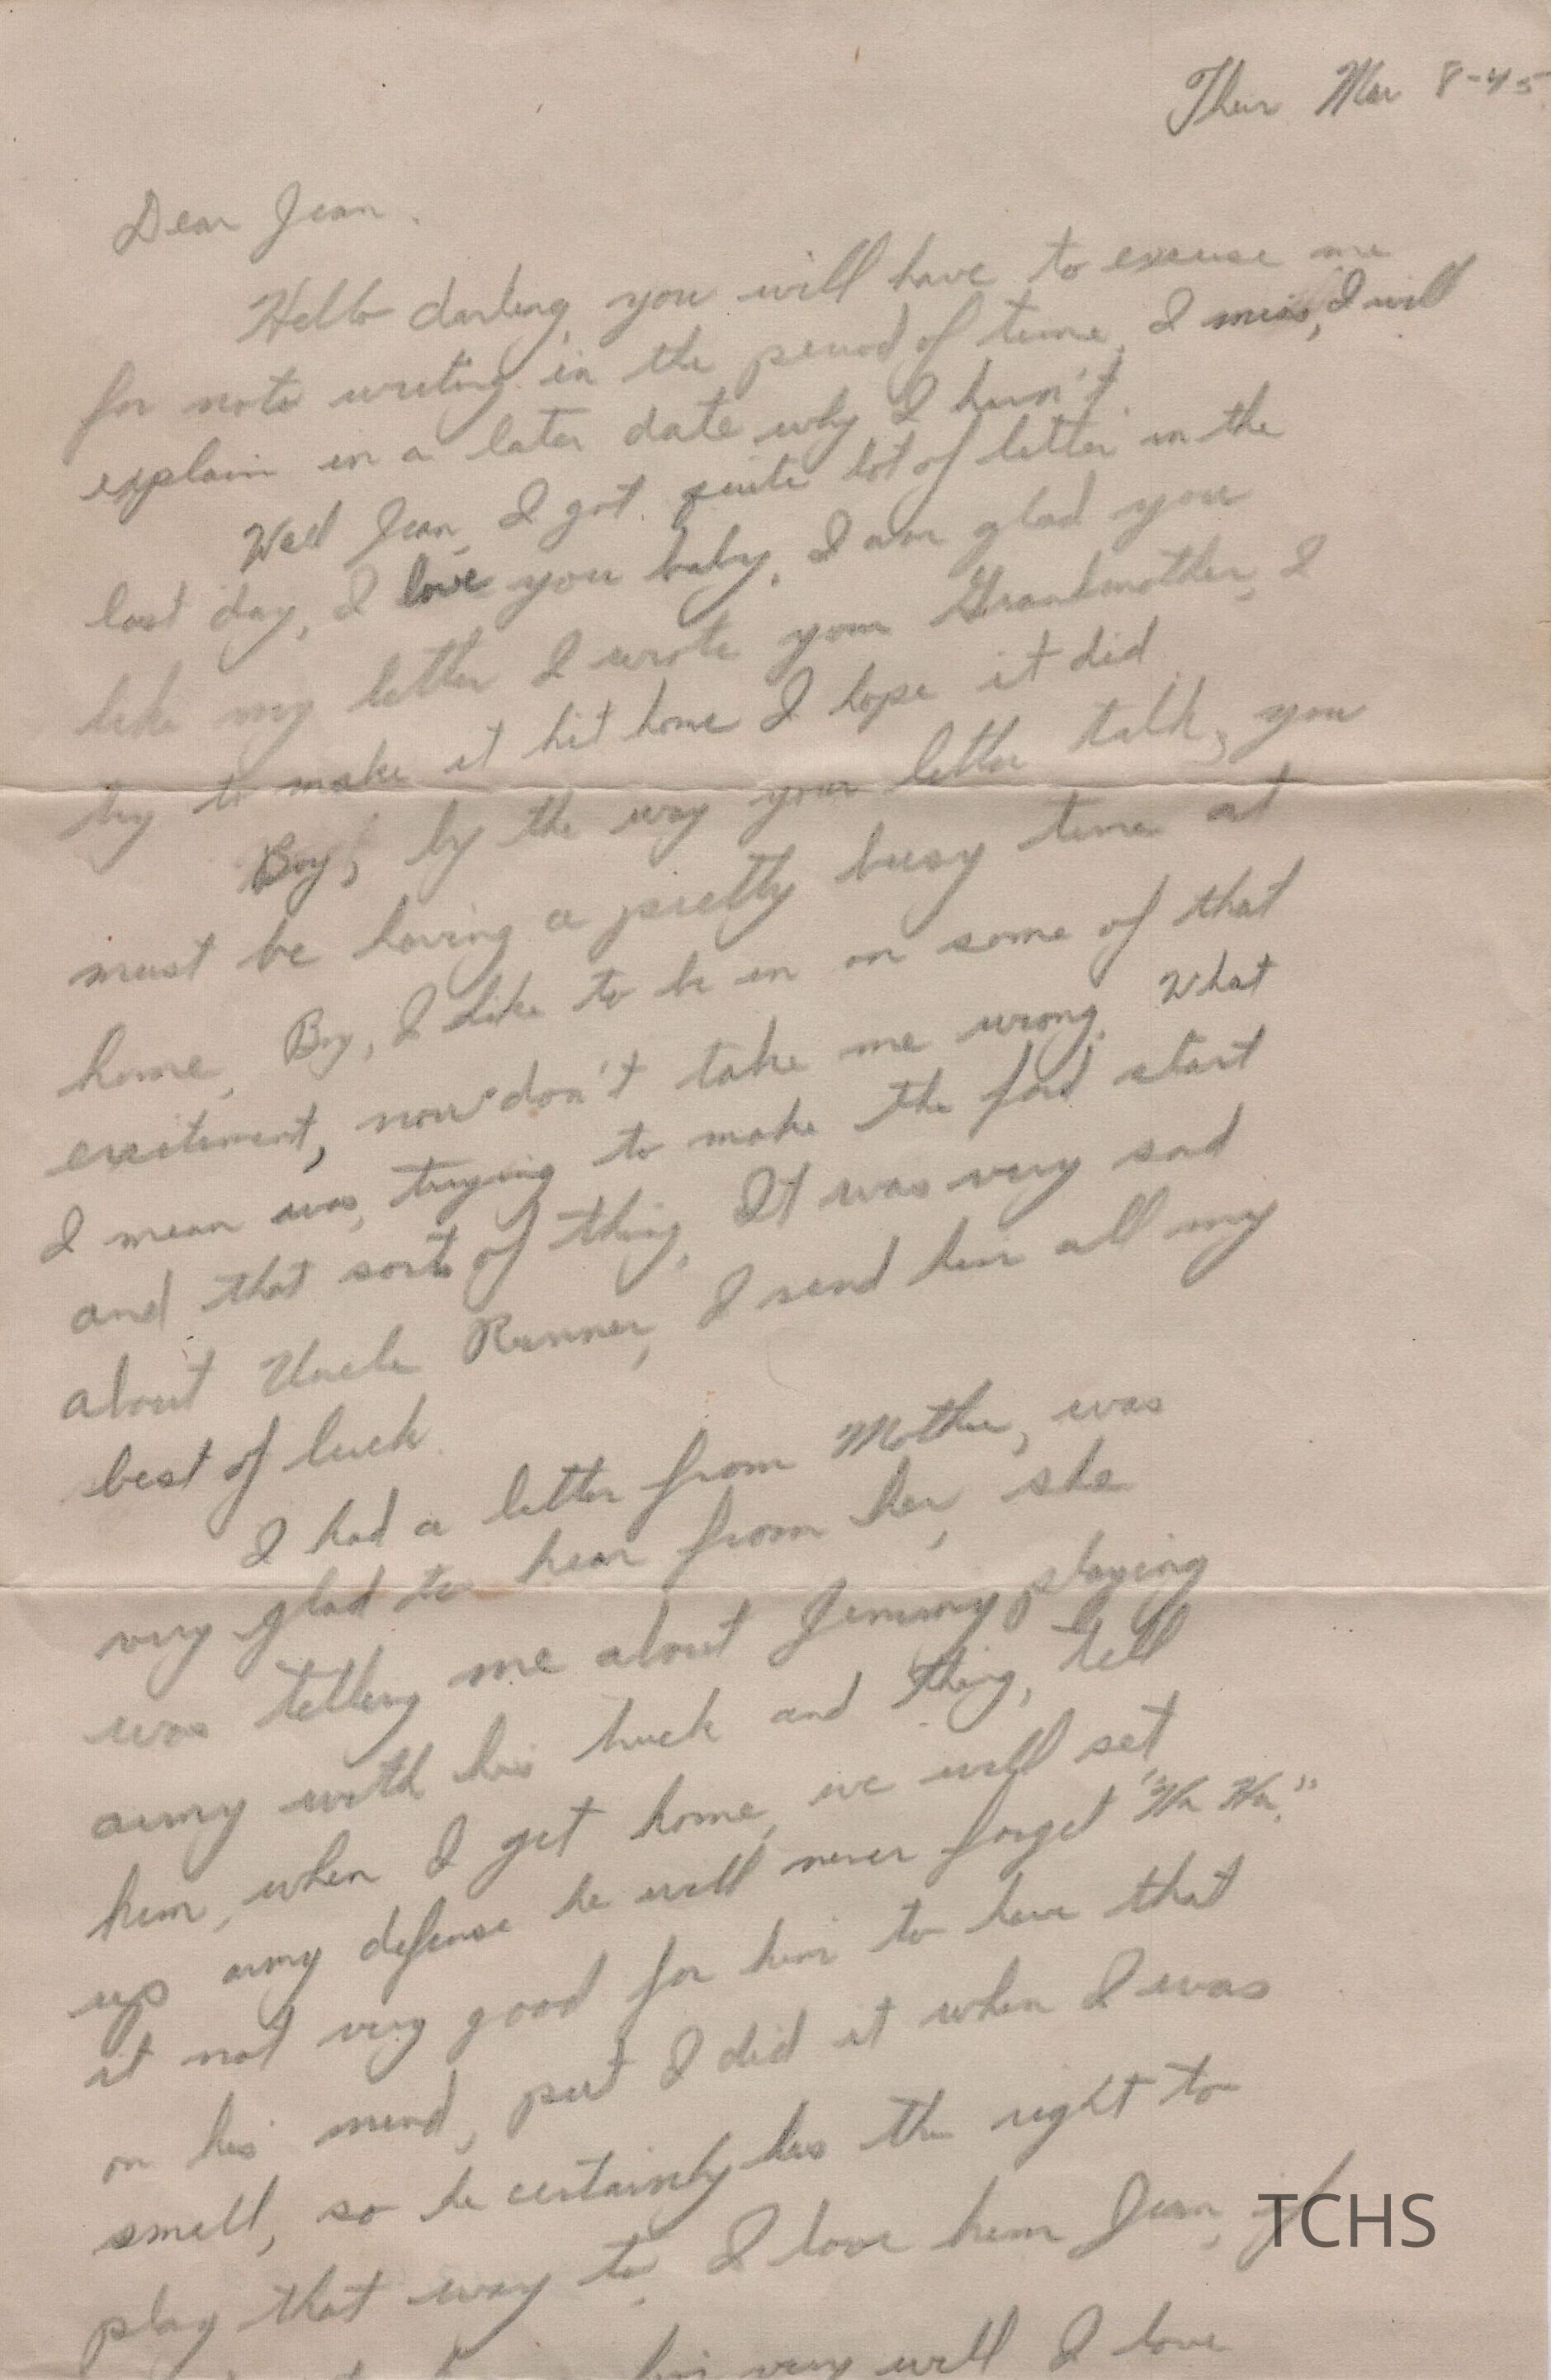 Thur Mar 8-45
Dear Jean.
Hello darling, you will have to excuse me
for note writing in the period of time, I miss, I will
explain in a later date why I havn't.
Well Jean, I got quite lot of letter in the
last day, I love you baby, I am glad you
like my letter I wrote your Grandmother, I
try to make it hit home I hope it did.
Boy, by the way your letter talk, you
must be having a pretty busy time at
home. Boy, I like to be in on some of that
excitement, now don't take me wrong. What
I mean was, trying to make the ford start
and that sorts of thing. It was very sad
about Uncle Runner, I send him all my
best of luck.
I had a letter from Mother, was
very glad to hear from her, she
was telling me about Jimmy playing
army with his truck and thing, tell
him, when I get home, we will set
up army defense he will never forget "Ha Ha."
it not very good for him to have that
on his mind, put I did it when I was
small, so he certainly has the right to
play that way to. I love him Jean, if
TCHS
him very well I love